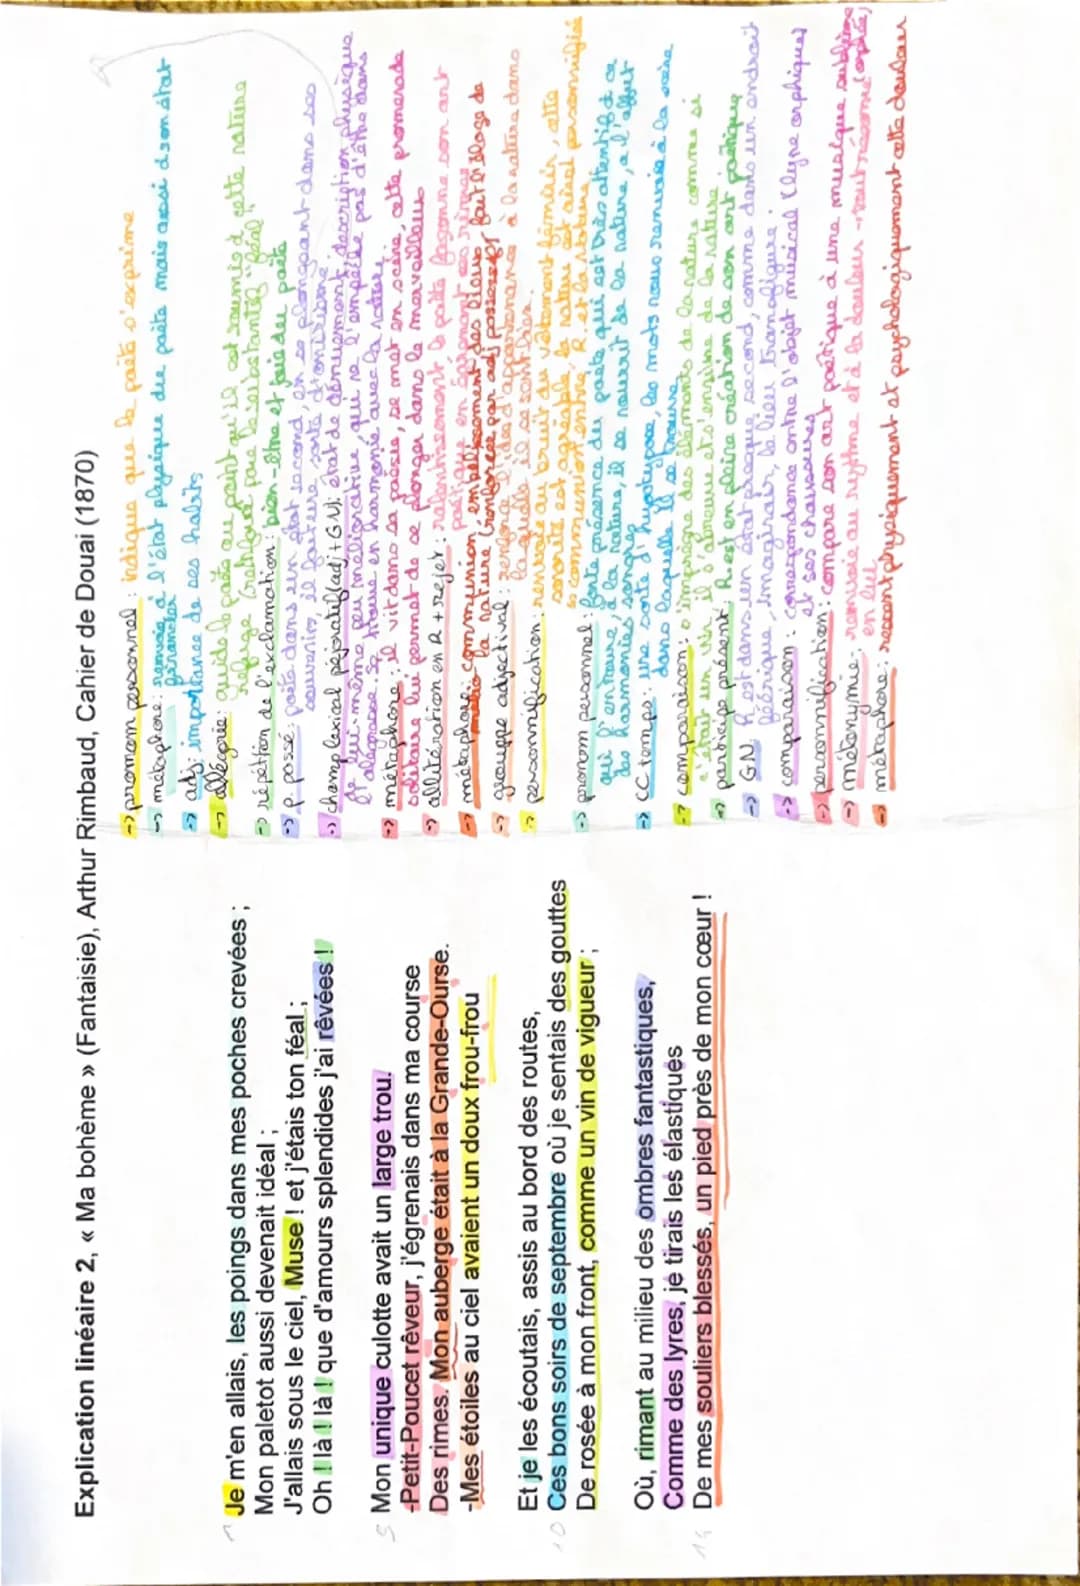 Explication linéaire 2, « Ma bohème » (Fantaisie), Arthur Rimbaud, Cahier de Douai (1870)
1 Je m'en allais, les poings dans mes poches crevées ;
Mon paletot aussi devenait idéal ;
J'allais sous le ciel, Muse ! et j'étais ton féal ;
Oh ! là ! là ! que d'amours splendides j'ai rêvées !
5 Mon unique culotte avait un large trou.
-Petit-Poucet rêveur, j'égrenais dans ma course
Des rimes. Mon auberge était à la Grande-Ourse.
-Mes étoiles au ciel avaient un doux frou-frou
Et je les écoutais, assis au bord des routes,
10 Ces bons soirs de septembre où je sentais des gouttes
De rosée à mon front, comme un vin de vigueur ;
Où, rimant au milieu des ombres fantastiques,
Comme des lyres, je tirais les élastiques
14 De mes souliers blessés, un pied près de mon cœur !
-> pronom personnel : indique que le poète s'exprime
-> métaphore : renvoie à l'état physique du poète mais aussi à son état
financier
-> adj : importance de ses habits
-> allégorie : guide le poète au point qu'il est soumis à cette nature
refuge
-> répétition de l'exclamation : bien-être et joie du poète
-> p. passé : poète dans un état second, en se plongeant dans ses
souvenirs, il
-> champ lexical péjoratif (adj + GN) : état de dénuement, description physique
de lui-même peu méliorative, qui ne l'empêche pas d'être dans
l'allégresse se trouve en harmonie avec la nature
-> métaphore : il vit dans sa poésie, se met en scène, cette promenade
solitaire lui permet de se plonger dans le merveilleux
-> allitération en R + rejet : ralentissement, le poète façonne son art
poétique en égrenant ses rimes
-> métaphore : communion, fait l'éloge de
la nature (renforcée par adj possessif)
-> groupe adjectival : renforce l'idée d'appartenance à la nature dans
laquelle il se sent bien
-> personnification : renvoie au bruit du vêtement féminin, cette
sonorité est agréable, la nature est ainsi personnifiée
=> communion entre R. et la nature
-> pronom personnel : forte présence du poète qui est très attentif à ce
qui l'entoure, à la nature, il se nourrit de la nature, à l'affût
des harmonies
-> CC temps : une sorte d'hypotypose, les mots nous renvoie à la scène
dans laquelle il se trouve
-> comparaison : s'imprègne des éléments de la nature comme si
c'était un vin, il s'abreuve et s'enivre de la nature
-> participe présent : R. est en pleine création de son art poétique
-> GN : R est dans un état presque second, comme dans un endroit
féérique, imaginaire, le lieu transfiguré.
-> comparaison : correspondance entre l'objet musical (lyre orphique)
et ses chaussures
-> personnification : compare son art poétique à une musique sublime
-> métonymie : renvoie au rythme et à la douleur
en lui
-> métaphore : ressent physiquement et psychologiquement cette douleur